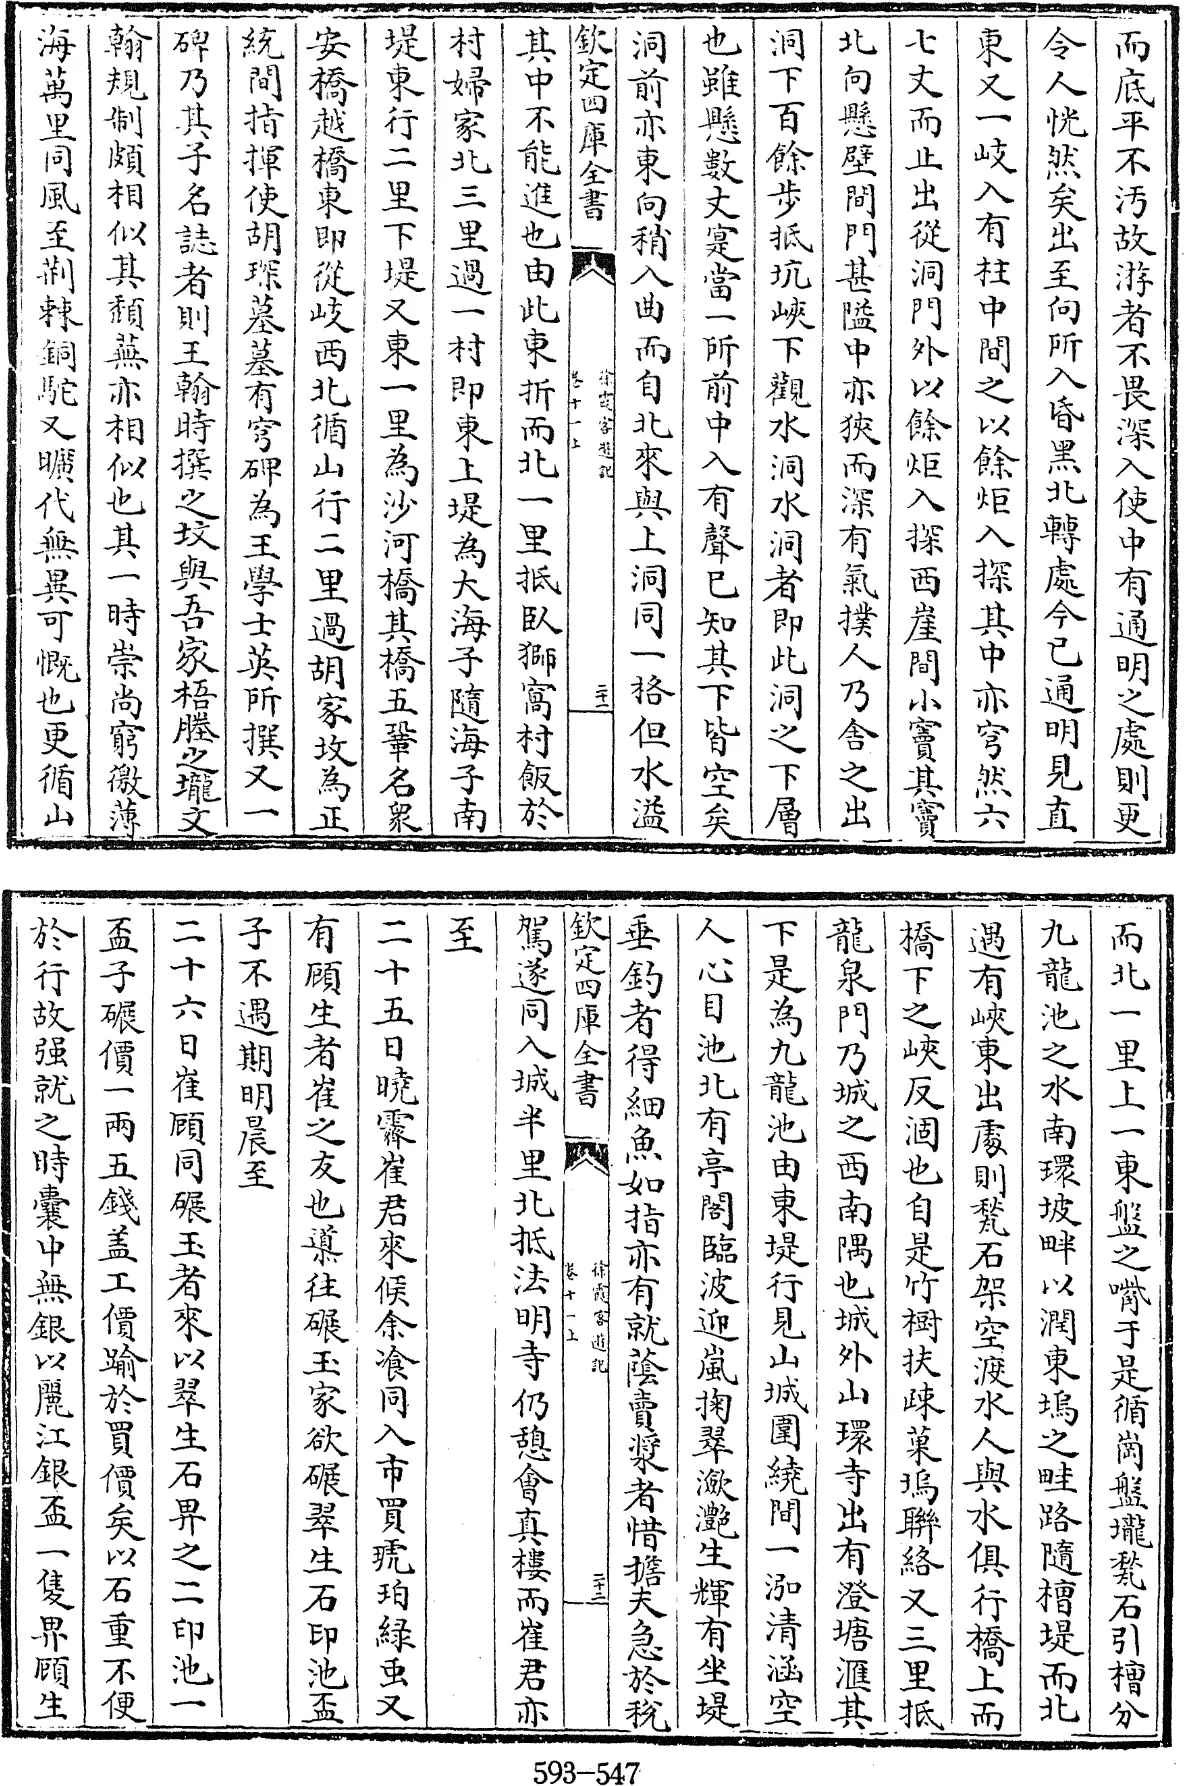 而底平不汚故游者不畏深入使中有通明之處則更
令人恍然矣出至向所入昏黑北轉處今已通明見直
東又一岐入有柱中間之以餘炬入探其中亦穹然六
七丈而止出從洞門外以餘炬入探西崖間小竇其竇
北向懸壁間門甚隘中亦狹而深有氣撲人乃舍之出
洞下百餘步抵坑峽下觀水洞水洞者即此洞之下層
也雖懸數丈寔當一所前中入有聲已知其下皆空矣
洞前亦東向稍入曲而自北來與上洞同一格但水溢
欽定四庫全書
徐霞客遊記
卷十一上
二十二
其中不能進也由此東折而北一里抵臥獅窩村飯於
村婦家北三里過一村即東上堤為大海子隨海子南
堤東行二里下堤又東一里為沙河橋其橋五鞏名衆
安橋越橋東即從岐西北循山行二里過胡家坟為正
統間指揮使胡琛墓墓有穹碑為王學士英所撰又一
碑乃其子名誌者則王翰時撰之坟與吾家梧塍之壠文
翰規制頗相似其頽蕪亦相似也其一時崇尚窮徼薄
海萬里同風至荆棘銅駝又曠代無異可慨也更循山
而北一里上一東盤之嘴于是循崗盤壠甃石引槽分
九龍池之水南環坡畔以潤東塢之畦路隨槽堤而北
遇有峽東出處則甃石架空渡水人與水俱行橋上而
橋下之峽反涸也自是竹樹扶疎菓塢聯絡又三里抵
龍泉門乃城之西南隅也城外山環寺出有澄塘滙其
下是為九龍池由東堤行見山城圍繞間一泓清涵空
人心目池北有亭閣臨波迎嵐掬翠瀲灔生輝有坐堤
垂釣者得細魚如指亦有就蔭賣漿者惜擔夫急於税
欽定四庫全書
徐霞客遊記
卷十一上
二十三
駕遂同入城半里北抵法明寺仍憩會真樓而崔君亦
至
二十五日曉霽崔君來候余飡同入市買琥珀緑虫又
有顧生者崔之友也導往碾玉家欲碾翠生石印池盃
子不遇期明晨至
二十六日崔顧同碾玉者來以翠生石畀之二印池一
盃子碾價一兩五錢盖工價踰於買價矣以石重不便
於行故强就之時囊中無銀以麗江銀盃一隻畀顧生
593-547